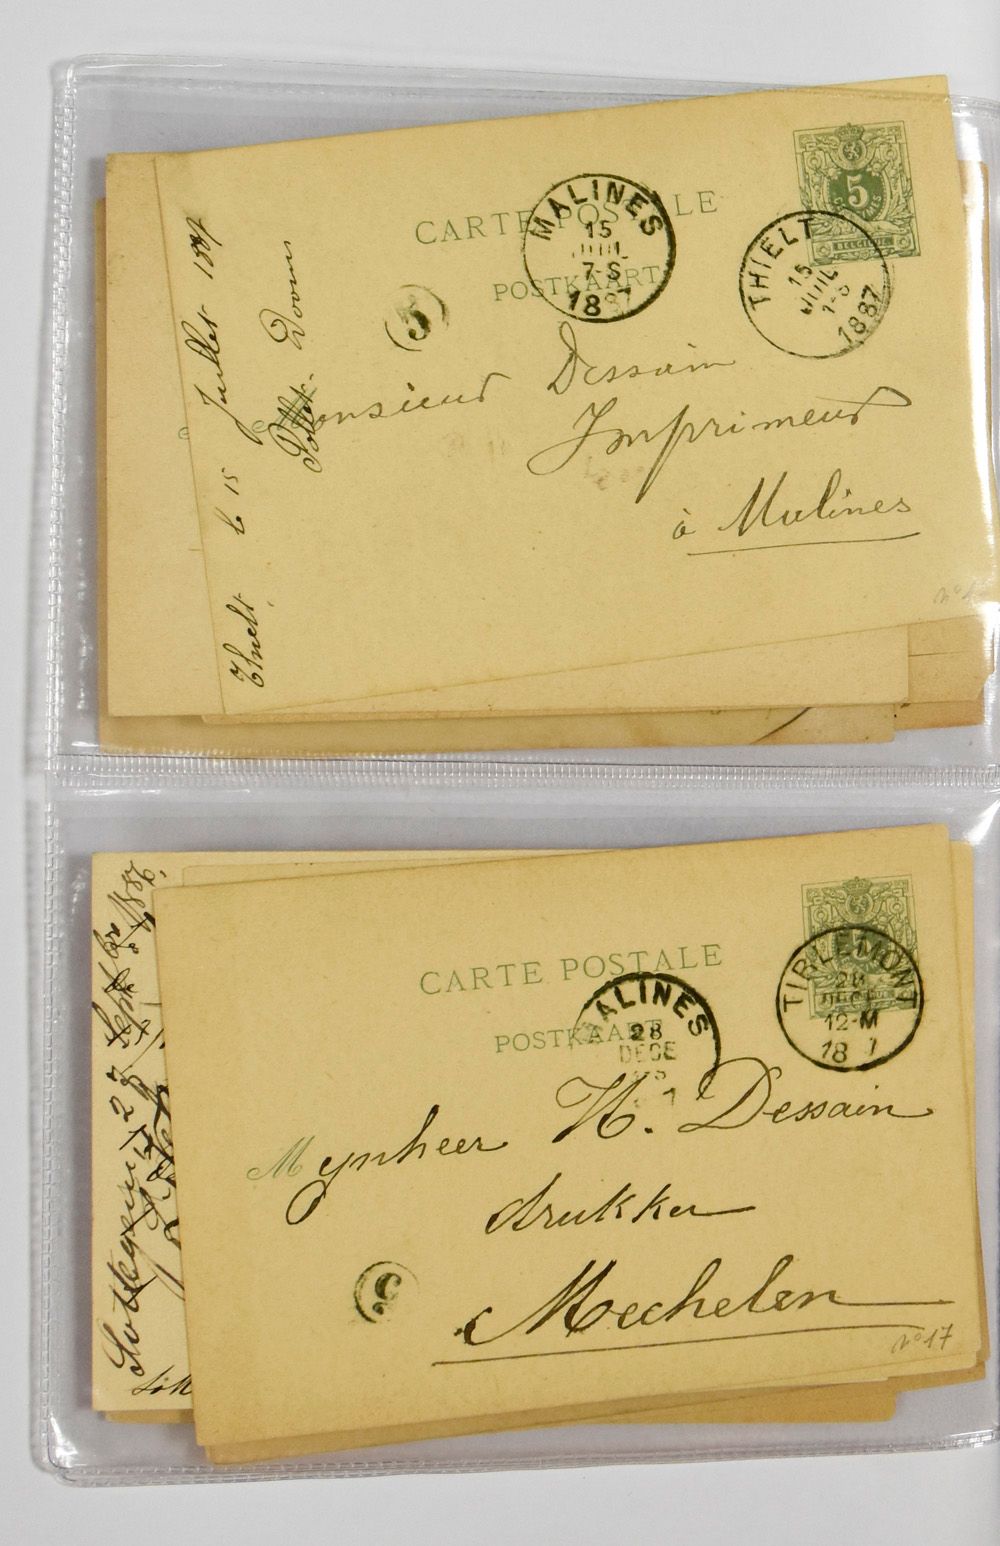 CARTE POSTALE
POSTKAART
5
BELGIQUE
MALINES
15
JUIL
7-S
1887
THIELT
15
JUIL
1-S
1887
5
Thielt le 15 Juillet 1887
Monsieur Dessain
Imprimeur
à Malines
CARTE POSTALE
POSTKAART
MALINES
28
DECE
TIRLEMONT
28
DECE
12-M
18 7
Mynheer H. Dessain
drukker
Mechelen
n° 17
Sottegem 27 Septbre 1887